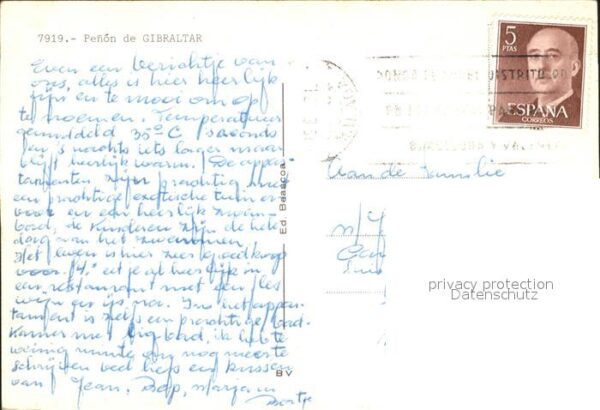 7919.- Peñón de GIBRALTAR
Even een berichtje van
ons, alles is hier heerlijk
fijn en te mooi om op
te noemen. Temperatuur
gemiddeld 35°C 's avonds
en 's nachts iets lager maar
blijft heerlijk warm. De appar-
tementen zijn prachtig met
een prachtige exotische tuin er-
voor en een heerlijk zwem-
bad, de kinderen zijn de hele
dag aan het zwemmen
Het leven is hier zeer goedkoop
voor f4,- eet je al heerlijk in
een restaurant met een fles
wijn en ijs na. In het appar-
tement is zelfs een prachtige bad-
kamer met ligbad, ik heb te
weinig ruimte om nog meer te
schrijven veel liefs en kussen
van Jean, Bep, Marja en
Bertje
Ed. Beascoa
BV
5
PTAS
ESPAÑA
CORREOS
DISTRITO
Aan de Familie
privacy protection
Datenschutz